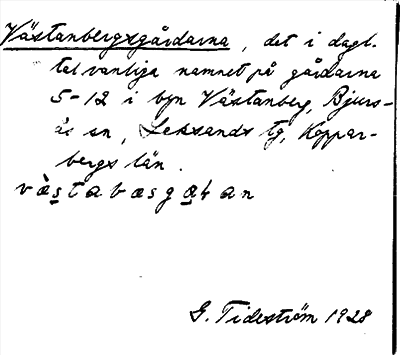 Västanbergsgårdarna, det i dagl.
tal vanliga namnet på gårdarna
5-12 i byn Västanberg, Bjurs-
ås sn, Leksands tg, Koppar-
bergs län.
västabæsga
G. Tideström 1928